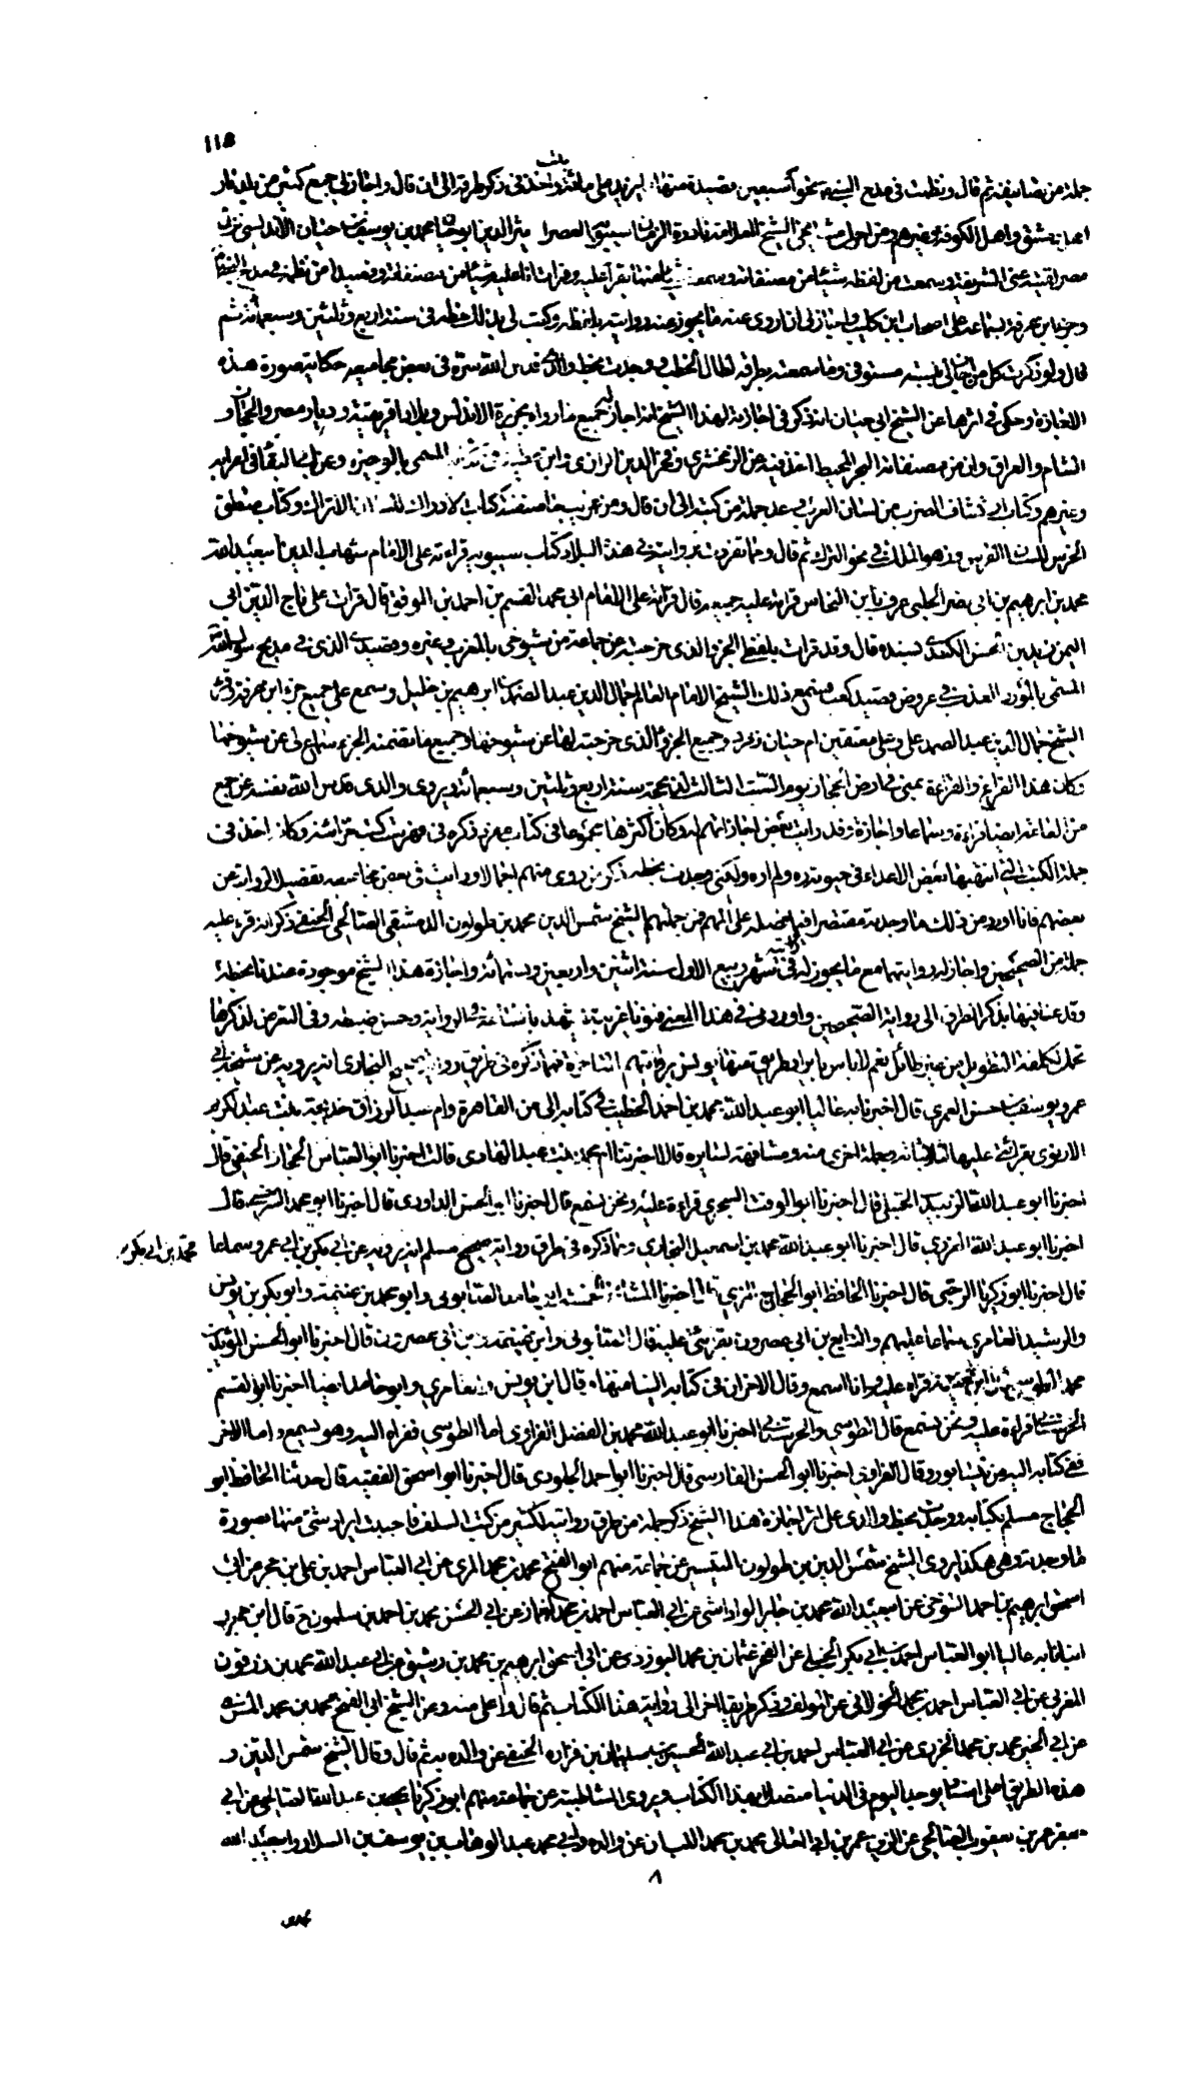 جملة من تصانيفه ثم قال ونظمت في مدح النبي نحو أسبعين قصيدة منها ما يزيد على مائة واخذ في ذكر طرقه الى ان قال واجاز لي جمع كثير من بلدنا و
دمشق واهل الكوفة وغيرهم ومن اجل مشايخي الشيخ العلامة نادرة الزمان سيبويه العصر اثير الدين ابو حيان محمد بن يوسف بن حيان الأندلسي نزيل
مصر لقيته بمنى الشريفة وسمعت من لفظه شيئا من مصنفاته وسمعت بقرا عليه وقرات انا عليه شيئا من مصنفاته وقصيدا من نظمه في مدح النبي
وجزء ابن عرفة بسماعه على اصحاب ابن كليب واجاز لي ان اروي عنه ما يجوز عنه روايته بلفظه وكتب لي بذلك خطه في سنة اربع وثلثين وسبعمائة ثم
قال ولو ذكرت كل من اجازني مستوفى وما سمعته بطرقه لطال الخطب ووجدت بخط والدي قدس الله سره في بعض مجاميعه حكاية صورة هذه
الاجازة وحكى في اثرها عن الشيخ ابي حيان انه ذكر في اجازته لهذا الشيخ انه اجاز له جميع ما رواه بجزيرة الاندلس وبلاد افريقية وديار مصر والحجاز و
الشام والعراق وان من مصنفاته البحر المحيط اخذ فيه عن الزمخشري وفخر الدين الرازي وابن عطية في المسمى بالوجيز وعن ابي البقا في اعرابه
وغيرهم وكتاب ارتشاف الضرب من لسان العرب وعد جملة من كتبه الى ان قال ومن غريب ما صنفته كتاب الادراك للسان الاتراك وكتاب منطق
الخرس للسان الفرس وزهو الملك في نحو الترك ثم قال ومما تفردت بروايته في هذه البلاد كتاب سيبويه قراءته على الامام شهاب الدين ابي عبد الله
محمد بن ابرهيم بن ابي نصر الحلبي عرف بابن النحاس قرائة عليه جميعه قال قرأته على الامام ابي محمد القسم بن احمد بن الموفق قال قرات على تاج الدين ابي
اليمن زيد بن الحسن الكندي بسنده قال وقد قرات بلفظي الجزء الذي خرجته عن جماعة من شيوخي بالمغرب وغيره وقصيدي الذي في مدح رسول الله
المسمى بالمورد العذب في عروض قصيد كعب فسمع ذلك الشيخ الامام العالم جمال الدين عبد الصمد بن ابرهيم بن خليل وسمع على جميع جزء ابن عرفة وقرأ
الشيخ جمال الدين عبد الصمد على وعلى معتقتي ام حيان زمرد وجميع الجزء الذي خرجته لها عن شيوخها وجميع ما تضمنه الجزء سماع لي عن شيوخها
وكان هذا القراءة والقراءة بمنى في ارض الحجاز يوم السبت الثالث لذي حجة سنة اربع وثلثين وسبعمائة ويروي والدي قدس الله نفسه عن جمع
من العامة ايضا قراءة وسماعا واجازة وقد رايت بعض اجازاتهم له وكان اكثرها مجموعا في كتاب مر ذكره في فهرست كتب خزانته وكان اخذ في
جملة الكتب التي انتهبها بعض الاعداء في حيوته ره ولم اره ولكني وجدت بخطه ذكر من روى منهم اجمالا ورايت في بعض مجاميعه تفصيل الرواية عن
بعضهم فانا اورد من ذلك ما وجدته مقتصرا فيما فصله على المهم فمن جملتهم الشيخ شمس الدين محمد بن طولون الدمشقي الصالحي الحنفي ذكر انه قرء عليه
جملة من الصحيحين واجاز له روايتهما مع ما يجوز له روايته في شهر ربيع الاول سنة اثنتين واربعين وتسعمائة واجازة هذا الشيخ موجودة عندنا بخطه
وقد عنى فيها بذكر الطرق الى رواية الصحيحين واورد في هذا المعنى فنونا غريبة تشهد باتساعه في الرواية وحسن ضبطه وفي التعرض لذكرها
تحمل لكلفة التطويل من غير طائل نعم لا باس بايراد طريق منها فمما ذكره في طريق رواية صحيح البخاري انه يرويه عن شيخه ابي
عمرو يوسف بن حسن العمري قال اخبرنا به عاليا ابو عبد الله محمد بن احمد الخطيب في كتابه الي من القاهرة وام عبد الرزاق خديجة بنت عبد الكريم
الارموي بقراءتي عليها لثلاثياته وجملة اخرى منه ومشافهة لسايره قالا اخبرتنا ام محمد بنت عبد الهادي قالت اخبرنا ابو العباس الحجار الحنفي قال
اخبرنا ابو عبد الله الزبيدي الحنبلي قال اخبرنا ابو الوقت السجزي قراءة عليه ونحن نسمع قال اخبرنا ابو الحسن الداودي قال اخبرنا ابو محمد السرخسي قال
اخبرنا ابو عبد الله الفربري قال اخبرنا ابو عبد الله محمد بن اسمعيل البخاري ومما ذكره في طرق رواية صحيح مسلم انه يرويه عن ابي بكر بن ابي عمر وسماعا
محمد بن ابي بكر
قال اخبرنا ابو زكريا الرحبي قال اخبرنا الحافظ ابو الحجاج المزي قال اخبرنا المشائخ الخمسة ابو حامد الصابوني وابو محمد بن غنيمة وابو بكر بن يونس
والرشيد العامري سماعا عليهم والرابع بن ابي عصرون بقراءتي عليه قال الصابوني وابن غنيمة وابن ابي عصرون قال اخبرنا ابو الحسن المؤيد بن
محمد الطوسي قراءة عليه وانا اسمع وقال الاخران في كتابه الينا منها وقال ابن يونس والعامري وابو حامد ايضا اخبرنا ابو القسم
الحرستاني قراءة عليه ونحن نسمع قال الطوسي والحرستاني اخبرنا ابو عبد الله محمد بن الفضل الفراوي اما الطوسي فقراءة اليه وهو يسمع واما الاخر
ففي كتابه اليه من نيشابور وقال الفراوي اخبرنا ابو الحسين الفارسي قال اخبرنا ابو احمد الجلودي قال اخبرنا ابو اسحق الفقيه قال حدثنا الحافظ ابو
الحجاج مسلم بكتابه ووجدت بخط والدي على اثر اجازة هذا الشيخ ذكر جملة من طرق روايته لكثير من كتب السلف فاحببت ايراد شئ منها بصورة
ما وجدته وهي هكذا يروي الشيخ شمس الدين بن طولون التيسير عن جماعة منهم ابو الفتح محمد بن محمد المزي عن ابي العباس احمد بن علي بن حجر عن ابي
اسحق ابرهيم بن احمد التنوخي عن ابي عبد الله محمد بن جابر الوادآشي عن ابي العباس احمد بن محمد الغماز عن ابي الحسن محمد بن احمد بن سلمون ح قال ابن حجر
انبانا به عاليا ابو العباس احمد بن ابي بكر الحنبلي عن الفخر عثمان بن محمد التوزري عن ابي اسحق ابرهيم بن محمد بن وثيق عن ابي عبد الله محمد بن زرقون
المغربي عن ابي العباس احمد بن محمد الخولاني عن المؤلف وذكر طريقا اخر الى رواية هذا الكتاب ثم قال واعلى منه وعن الشيخ ابي الفتح محمد بن محمد المزي
عن ابي الخير محمد بن محمد الجزري عن ابي العباس احمد بن ابي عبد الله الحسين بن سليمان بن فزارة الحنفي عن والده به ثم قال وقال الشيخ شمس الدين و
هذه الطريق اعلى اسناد يوجد اليوم في الدنيا متصلا بهذا الكتاب ويروي الشاطبية عن جماعة منهم ابو زكريا يحيى بن عبد الله الصالحي عن ابي
يعقوب الصالحي عن الزين عمر بن محمد بن محمد اللبان عن والده وابي محمد عبد الوهاب بن يوسف بن السلار وابي عبد الله